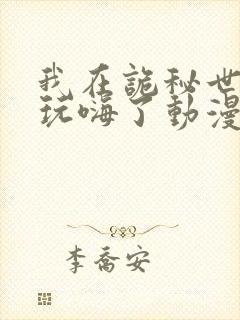 我在詭秘世
玩嗨了動漫
李喬安